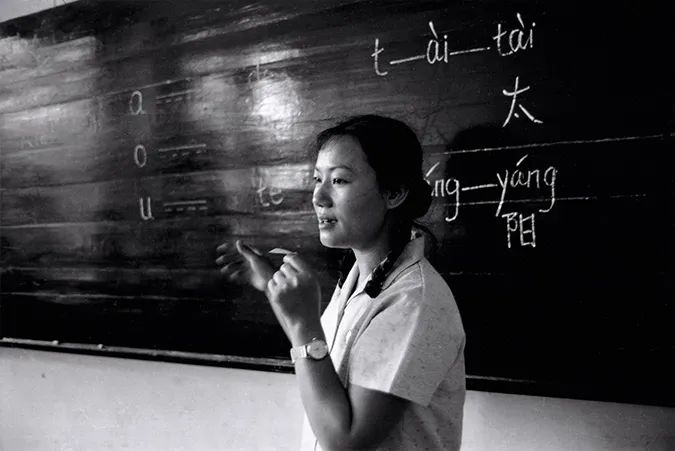 t—ài—tài
太
a
o
áng—yáng
u te
阳